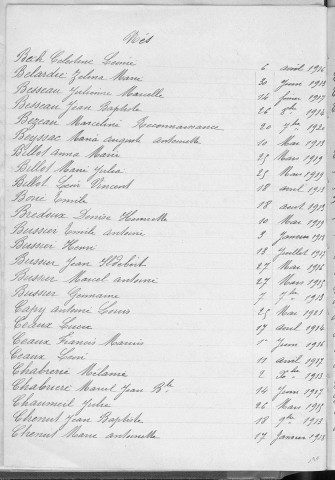 Nés
Bach Célestine Léonie 6 août 1916
Belardie Zelina Marie 30 Juin 1913
Besseau Julienne Marcelle 14 février 1917
Besseau Jean Baptiste 26 8bre 1916
Bezeau Marceline Reconnaissance 20 9bre 1921
Beyssac Maria Augusta Antoinette 10 Mai 1913
Billot Anna Marie 25 Mars 1919
Billot Marie Julia 25 Mars 1919
Billot Léon Vincent 18 avril 1913
Bone Emile 18 août 1919
Bredoux Denise Henriette 10 Mai 1919
Bussier Emile Antoine 9 Janvier 1913
Bussier Henri 13 Juillet 1915
Bussier Jean Norbert 27 Mai 1916
Bussier Marcel Antoine 27 Mars 1915
Bussier Germaine 7 7bre 1918
Capy Antoine Louis 25 Mai 1923
Ceaux Lucien 17 avril 1916
Ceaux Francis Marius 1er Juin 1918
Ceaux Léon 11 avril 1913
Chabrerie Mélanie 2 Xbre 1913
Chabrerie Marcel Jean Bte 14 Juin 1917
Chaumeil Julia 26 Mars 1915
Chonut Jean Baptiste 18 9bre 1913
Chonut Marie Antoinette 17 Janvier 1918